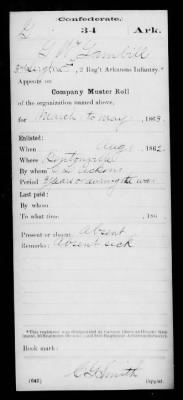 Confederate.
G 34 Ark.
G W Gambill
, 2 Reg't Arkansas Infantry.*
Appears on
Company Muster Roll
of the organization named above,
for March to May, 1863.
Enlisted:
When Aug, 1862.
Where Bentonville
By whom
Period 3 years or during the war
Last paid:
By whom
To what time , 186 .
Present or absent Absent
Remarks: Absent sick
Book mark:
C L Smith
(642) Copyist.